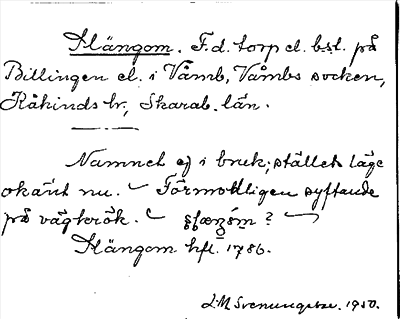 Slängom. F.d. torp el. bst. på
Billingen el. i Våmb, Våmbs socken,
Kåkinds hd, Skarab. län.
Namnet ej i bruk; ställets läge
okänt nu. Förmodligen syftande
på vägkrök.
Slängom hfl. 1786.
L.M. Svenungsson. 1950.